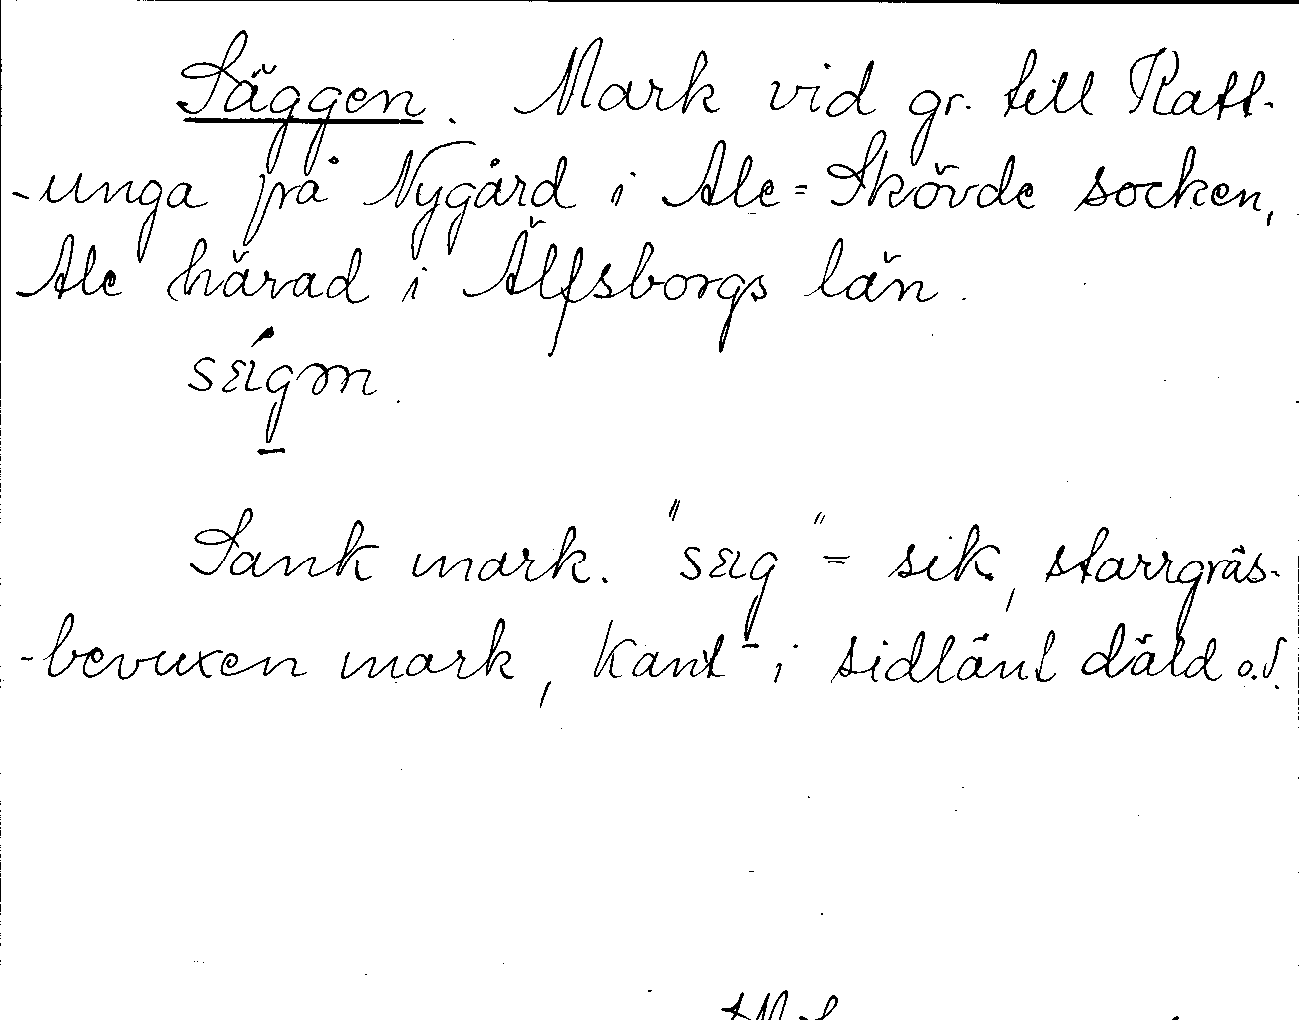 Säggen. Mark vid gr. till Katt-
-unga på Nygård i Ale-Skövde socken,
Ale härad i Älfsborgs län.
Sank mark. = sik, starrgräs-
-bevuxen mark, kant i sidlänt däld o.d.